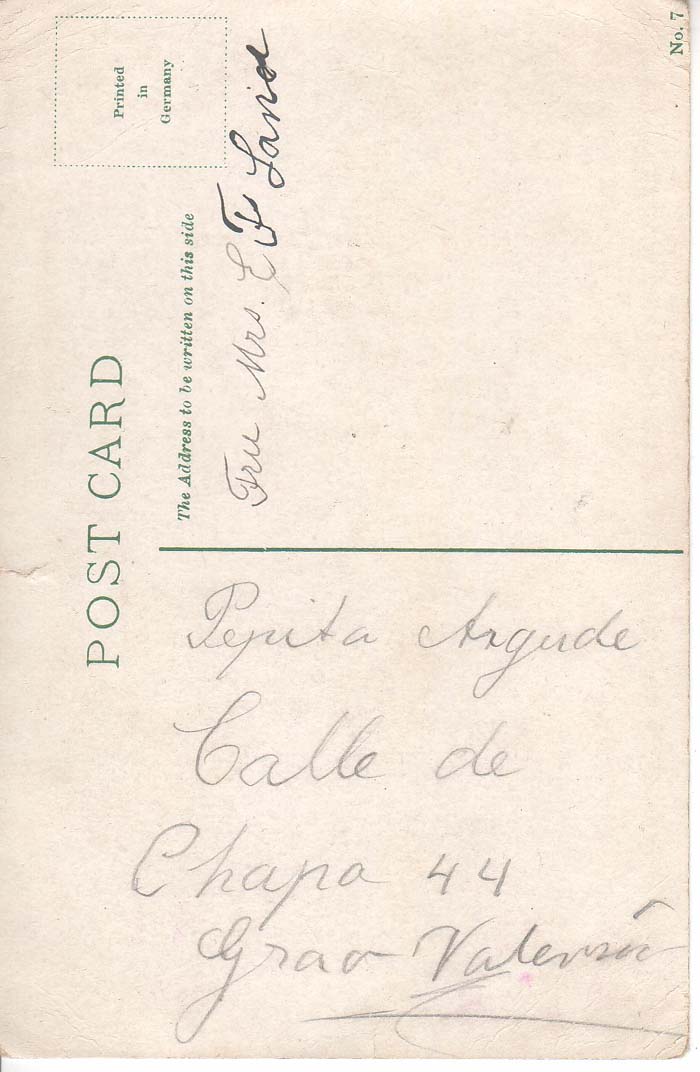 POST CARD
Printed
in
Germany
No. 7
The Address to be written on this side
Mrs. E F
Pepita Argude
Calle de
Chapa 44
Grao Valencia